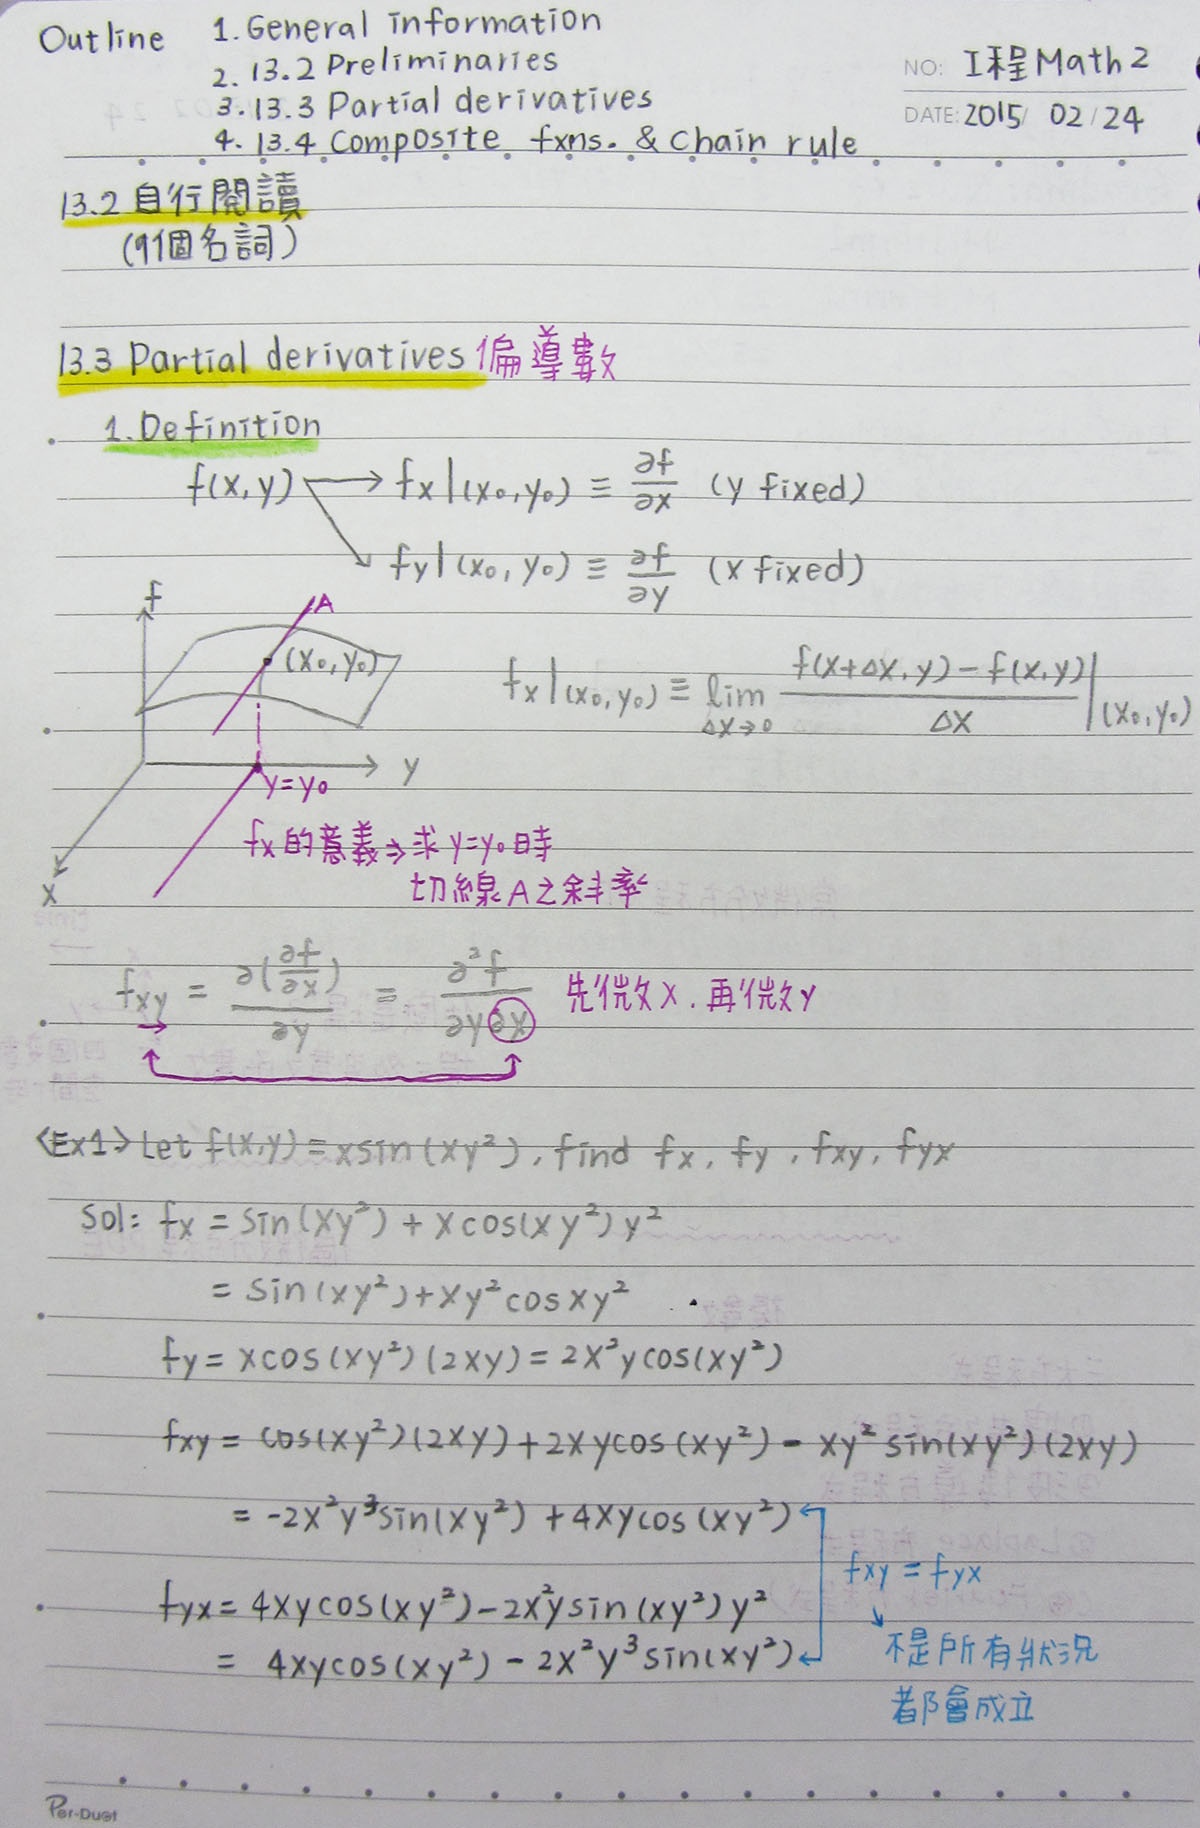 Outline 1. General information
2. 13.2 Preliminaries
3. 13.3 Partial derivatives
4. 13.4 Composite fxns. & Chain rule
NO: 工程Math 2
DATE: 2015/ 02/24
13.2 自行閱讀
(9個名詞)
13.3 Partial derivatives 偏導數
1. Definition
f(x,y) → fx|(x₀,y₀) ≡ ∂f/∂x (y fixed)
fy|(x₀,y₀) ≡ ∂f/∂y (x fixed)
f
A
(x₀,y₀)
y
y=y₀
x
fx|(x₀,y₀) ≡ lim Δx→0 f(x+Δx,y)-f(x,y)/Δx |(x₀,y₀)
fx的意義⇒求y=y₀時
切線A之斜率
fxy = ∂(∂f/∂x)/∂y = ∂²f/∂y∂x 先微x.再微y
<Ex1> Let f(x,y)=xsin(xy²), find fx, fy, fxy, fyx
Sol: fx = sin(xy²) + xcos(xy²)y²
= sin(xy²)+xy²cosxy²
fy = xcos(xy²)(2xy) = 2x²ycos(xy²)
fxy = cos(xy²)(2xy)+2xycos(xy²) - xy²sin(xy²)(2xy)
= -2x²y³sin(xy²) + 4xycos(xy²)
fxy = fyx
fyx = 4xycos(xy²)-2x²ysin(xy²)y²
= 4xycos(xy²) - 2x²y³sin(xy²)
不是所有狀況
都會成立
Per-Duet